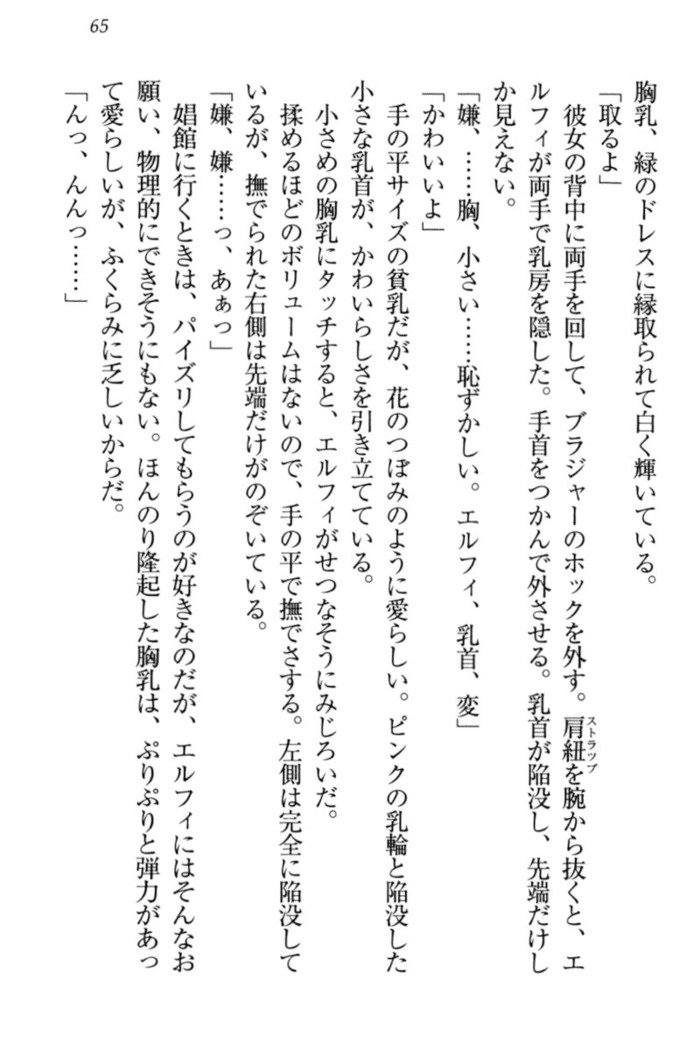 65
胸乳、緑のドレスに縁取られて白く輝いている。
「取るよ」
彼女の背中に両手を回して、ブラジャーのホックを外す。肩紐を腕から抜くと、エ
ストラップ
ルフィが両手で乳房を隠した。手首をつかんで外させる。乳首が陥没し、先端だけし
か見えない。
「嫌、……胸、小さい……恥ずかしい。エルフィ、乳首、変」
「かわいいよ」
手の平サイズの貧乳だが、花のつぼみのように愛らしい。ピンクの乳輪と陥没した
小さな乳首が、かわいらしさを引き立てている。
小さめの胸乳にタッチすると、エルフィがせつなそうにみじろいだ。
揉めるほどのボリュームはないので、手の平で撫でさする。左側は完全に陥没して
いるが、撫でられた右側は先端だけがのぞいている。
「嫌、嫌……っ、あぁっ」
娼館に行くときは、パイズリしてもらうのが好きなのだが、エルフィにはそんなお
願い、物理的にできそうにもない。ほんのり隆起した胸乳は、ぷりぷりと弾力があっ
て愛らしいが、ふくらみに乏しいからだ。
「んっ、んんっ……」